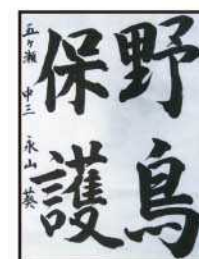 野鳥
保護
五ヶ瀬 中三 永山葵